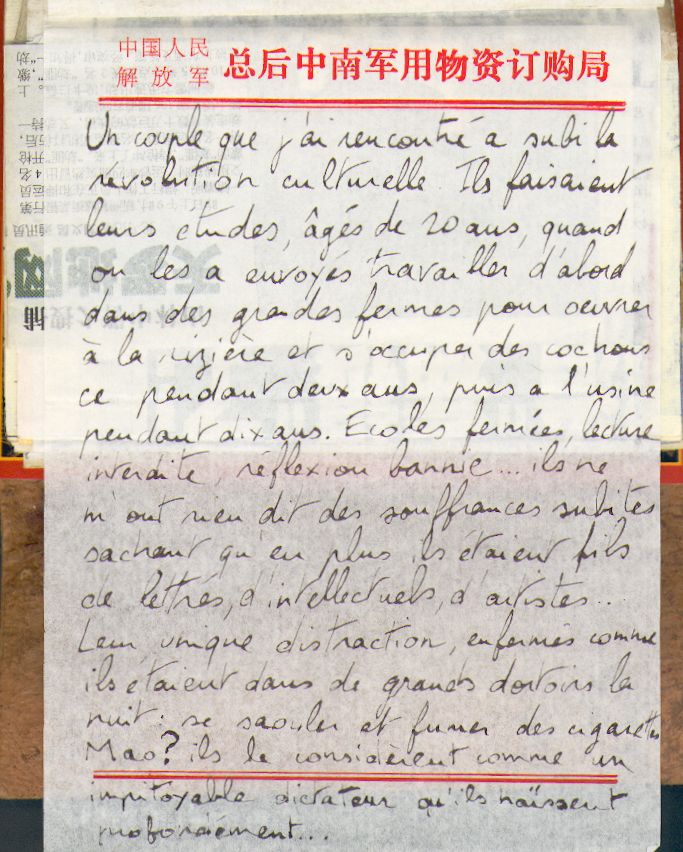 中国人民
解放军 总后中南军用物资订购局
Un couple que j'ai rencontré a subi la
révolution culturelle. Ils faisaient
leurs etudes, âgés de 20 ans, quand
on les a envoyés travailler d'abord
dans des grandes fermes pour oeuvrer
à la rizière et s'occuper des cochons
ce pendant deux ans, puis a l'usine
pendant dix ans. Ecoles fermées, lecture
interdite, réflexion bannie... ils ne
m'ont rien dit des souffrances subites
sachant qu'en plus ils étaient fils
de lettrés, d'intellectuels, d'artistes...
Leur unique distraction, enfermés comme
ils étaient dans de grands dortoirs la
nuit : se saouler et fumer des cigarettes
Mao? ils le considèrent comme un
impitoyable dictateur qu'ils haïssent
profondément...